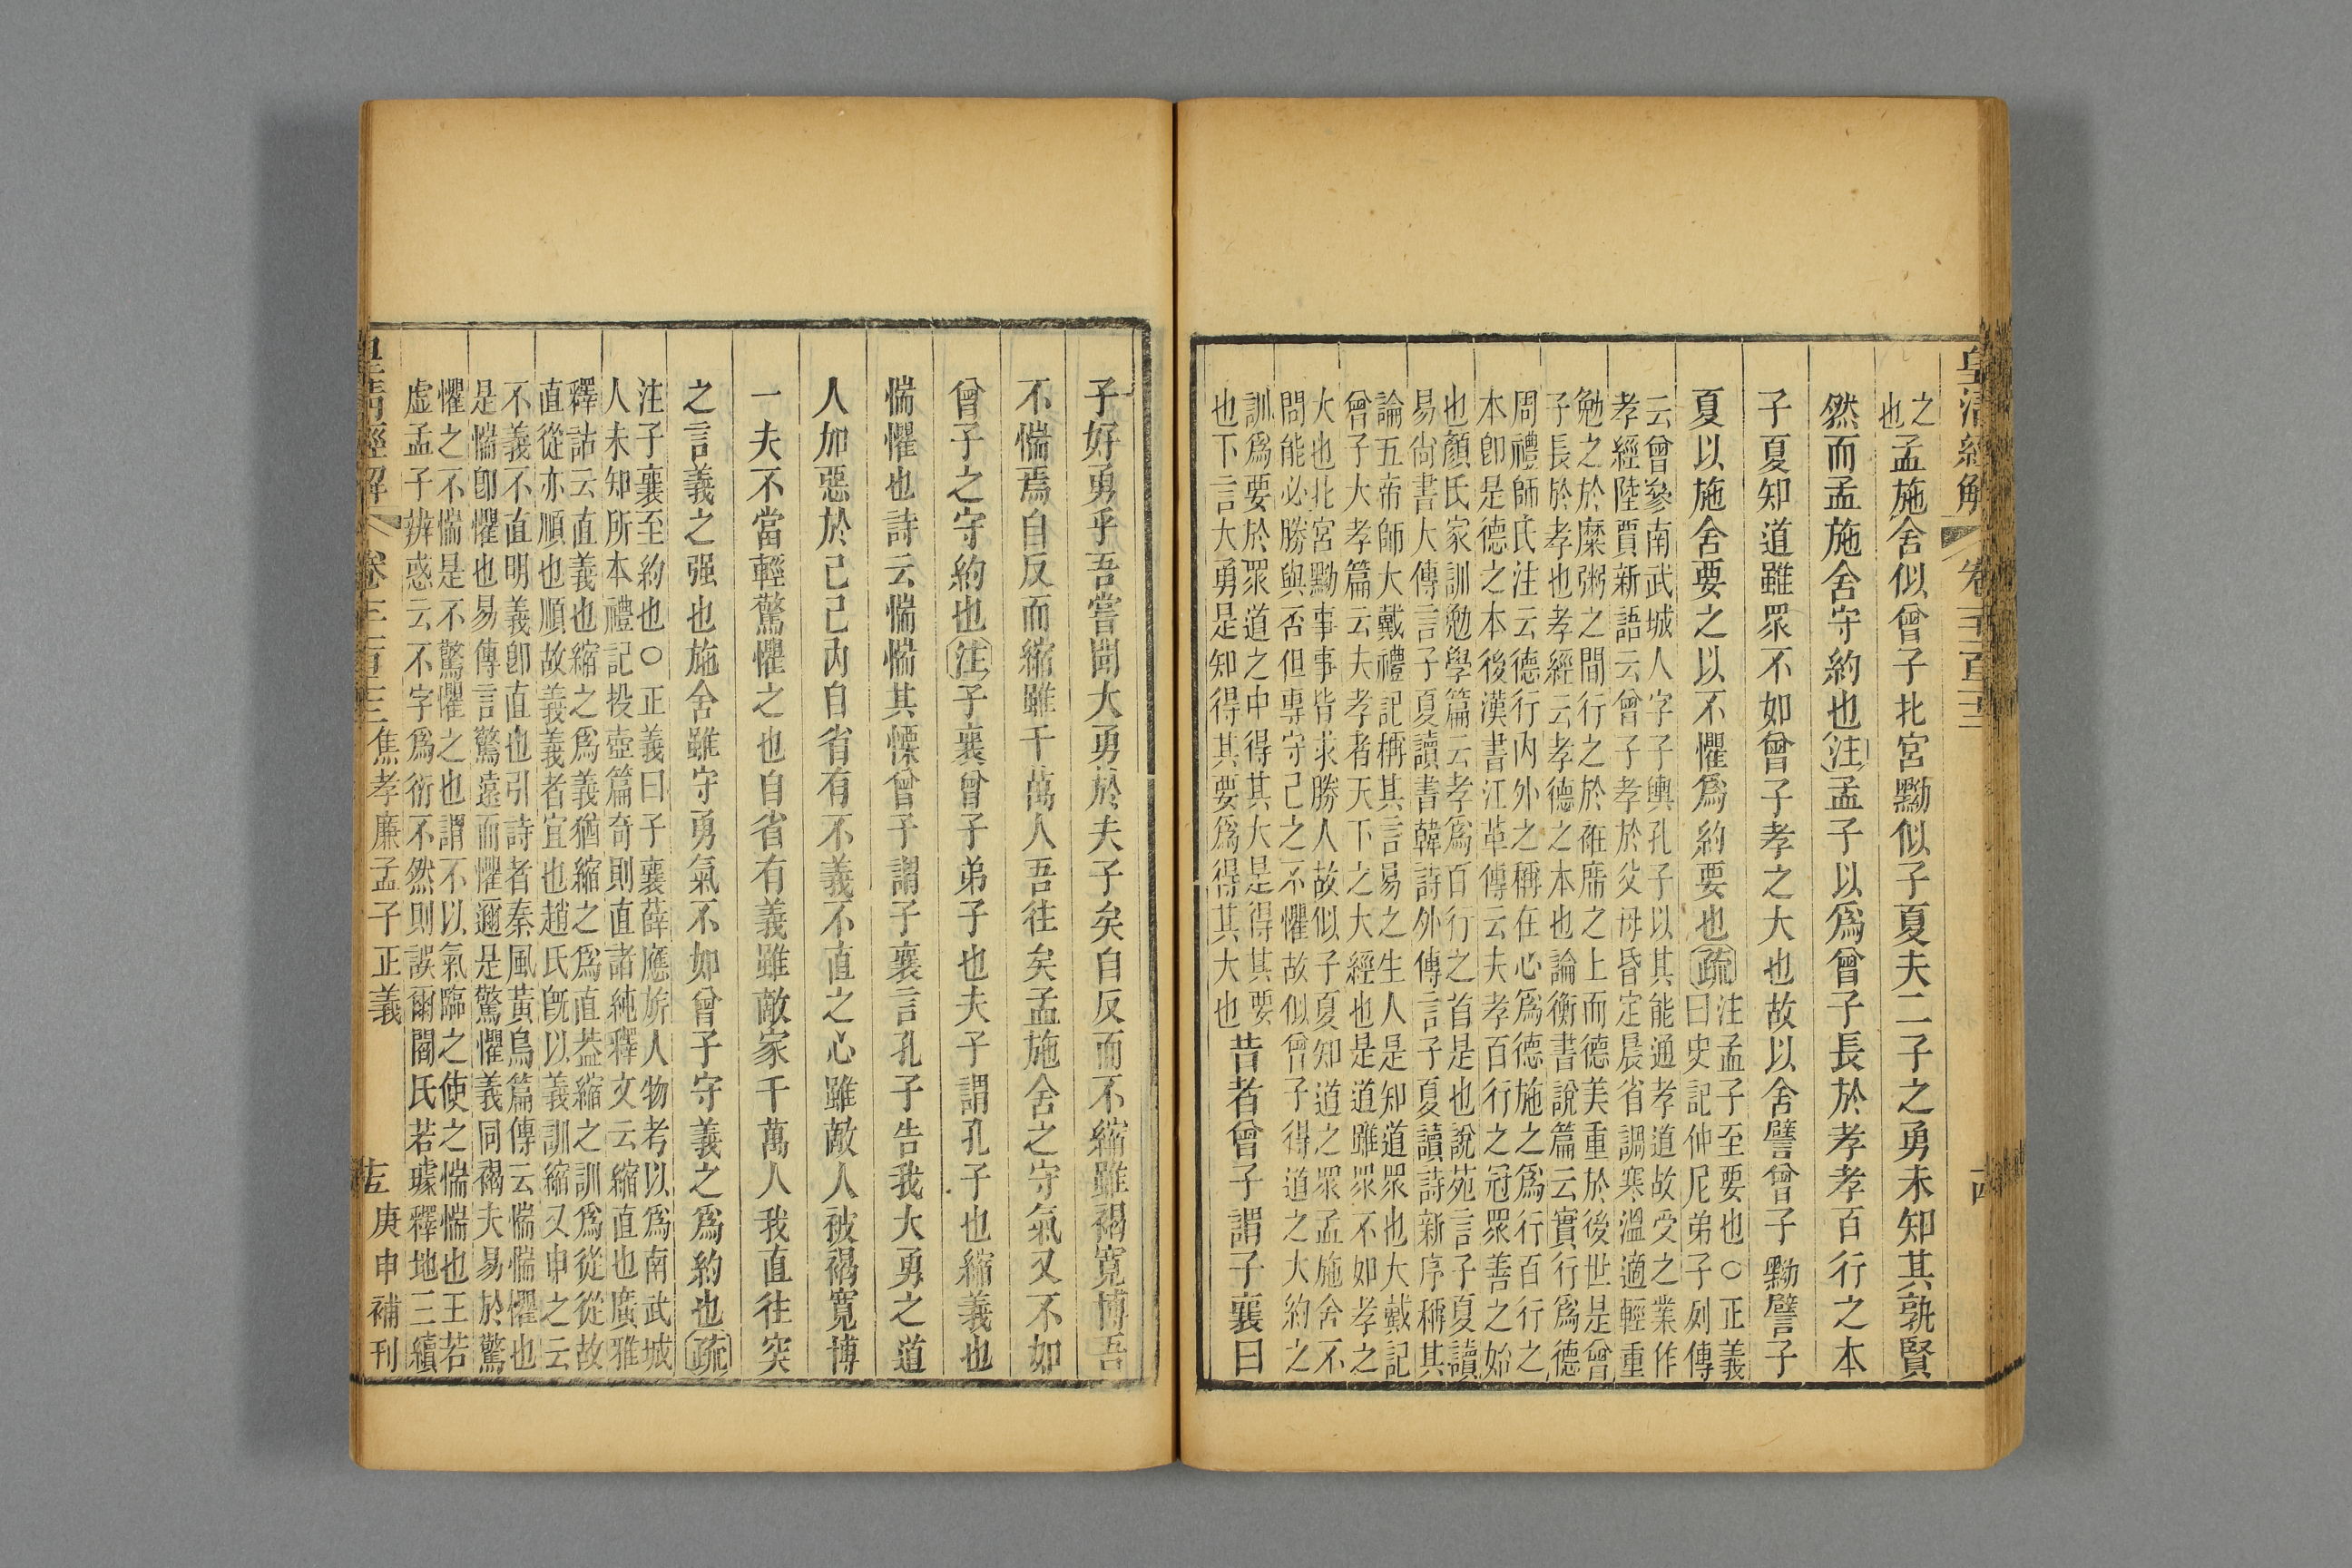 皇清經解
卷一千一百二十三
十四
之
也
孟施舍似曾子北宮黝似子夏夫二子之勇未知其孰賢
然而孟施舍守約也注孟子以爲曾子長於孝孝百行之本
子夏知道雖眾不如曾子孝之大也故以舍譬曾子黝譬子
夏以施舍要之以不懼爲約要也疏
注孟子至要也○正義
曰史記仲尼弟子列傳
云曾參南武城人字子輿孔子以其能通孝道故受之業作
孝經陸賈新語云曾子孝於父母昏定晨省調寒溫適輕重
勉之於糜粥之間行之於衽席之上而德美重於後世是曾
子長於孝也孝經云孝德之本也論衡書說篇云實行爲德
周禮師氏注云德行內外之稱在心爲德施之爲行百行之
本卽是德之本後漢書江革傳云夫孝百行之冠眾善之始
也顏氏家訓勉學篇云孝爲百行之首是也說苑言子夏讀
易尙書大傳言子夏讀書韓詩外傳言子夏讀詩新序稱其
論五帝師大戴禮記稱其言易之生人是知道眾也大戴記
曾子大孝篇云夫孝者天下之大經也是道雖眾不如孝之
大也北宮黝事事皆求勝人故似子夏知道之眾孟施舍不
問能必勝與否但專守己之不懼故似曾子得道之大約之
訓爲要於眾道之中得其大是得其要
也下言大勇是知得其要爲得其大也
昔者曾子謂子襄曰
子好勇乎吾嘗聞大勇於夫子矣自反而不縮雖褐寬博吾
不惴焉自反而縮雖千萬人吾往矣孟施舍之守氣又不如
曾子之守約也注子襄曾子弟子也夫子謂孔子也縮義也
惴懼也詩云惴惴其慄曾子謂子襄言孔子告我大勇之道
人加惡於己己內自省有不義不直之心雖敵人被褐寬博
一夫不當輕驚懼之也自省有義雖敵家千萬人我直往突
之言義之强也施舍雖守勇氣不如曾子守義之爲約也疏
注子襄至約也○正義曰子襄薛應旂人物考以爲南武城
人未知所本禮記投壺篇奇則直諸純釋文云縮直也廣雅
釋詁云直義也縮之爲義猶縮之爲直葢縮之訓爲從從故
直從亦順也順故義義者宜也趙氏旣以義訓縮又申之云
不義不直明義卽直也引詩者秦風黃鳥篇傳云惴惴懼也
是惴卽懼也易傳言驚遠而懼邇是驚懼義同褐夫易於驚
懼之不惴是不驚懼之也謂不以氣臨之使之惴惴也王若
虛孟子辨惑云不字爲衍不然則誤爾閻氏若璩釋地三續
皇清經解
焦孝廉孟子正義
十五
庚申補刊